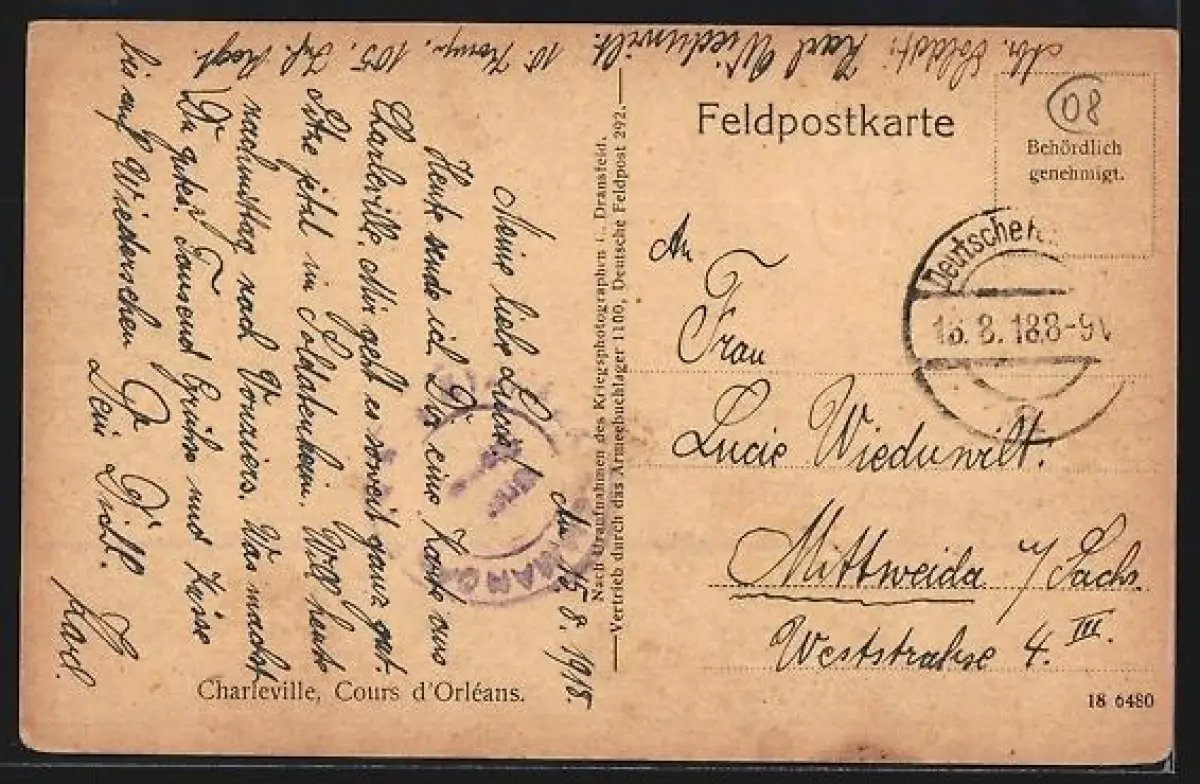 Feldpostkarte
08
Behördlich
genehmigt.
Abs. Soldat: Karl Wiedunwilt.
10. Komp. 105. Inf. Regt.
Deutsche
18.8-9V
An
Frau
Lucie Wiedunwilt.
Mittweida i/Sachs.
Weststrahse 4. III.
Nach Uraufnahmen des Kriegsphotographen Dransfeld.
Vertrieb durch das Armeebuchlager 1100, Deutsche Feldpost 292.
18 6480
Charleville, Cours d'Orléans.
15.8.1918.
Meine liebe
Heute sende ich Dir eine Karte aus
Charleville. Mir geht es soweit ganz gut.
Sitze jetzt im Soldatenheim. Will heute
nachmittag nach Vouziers. Was machst
Du gutes? Tausend Grüße und Küsse
bis auf Wiedersehen
Dein Dich l.
Karl.